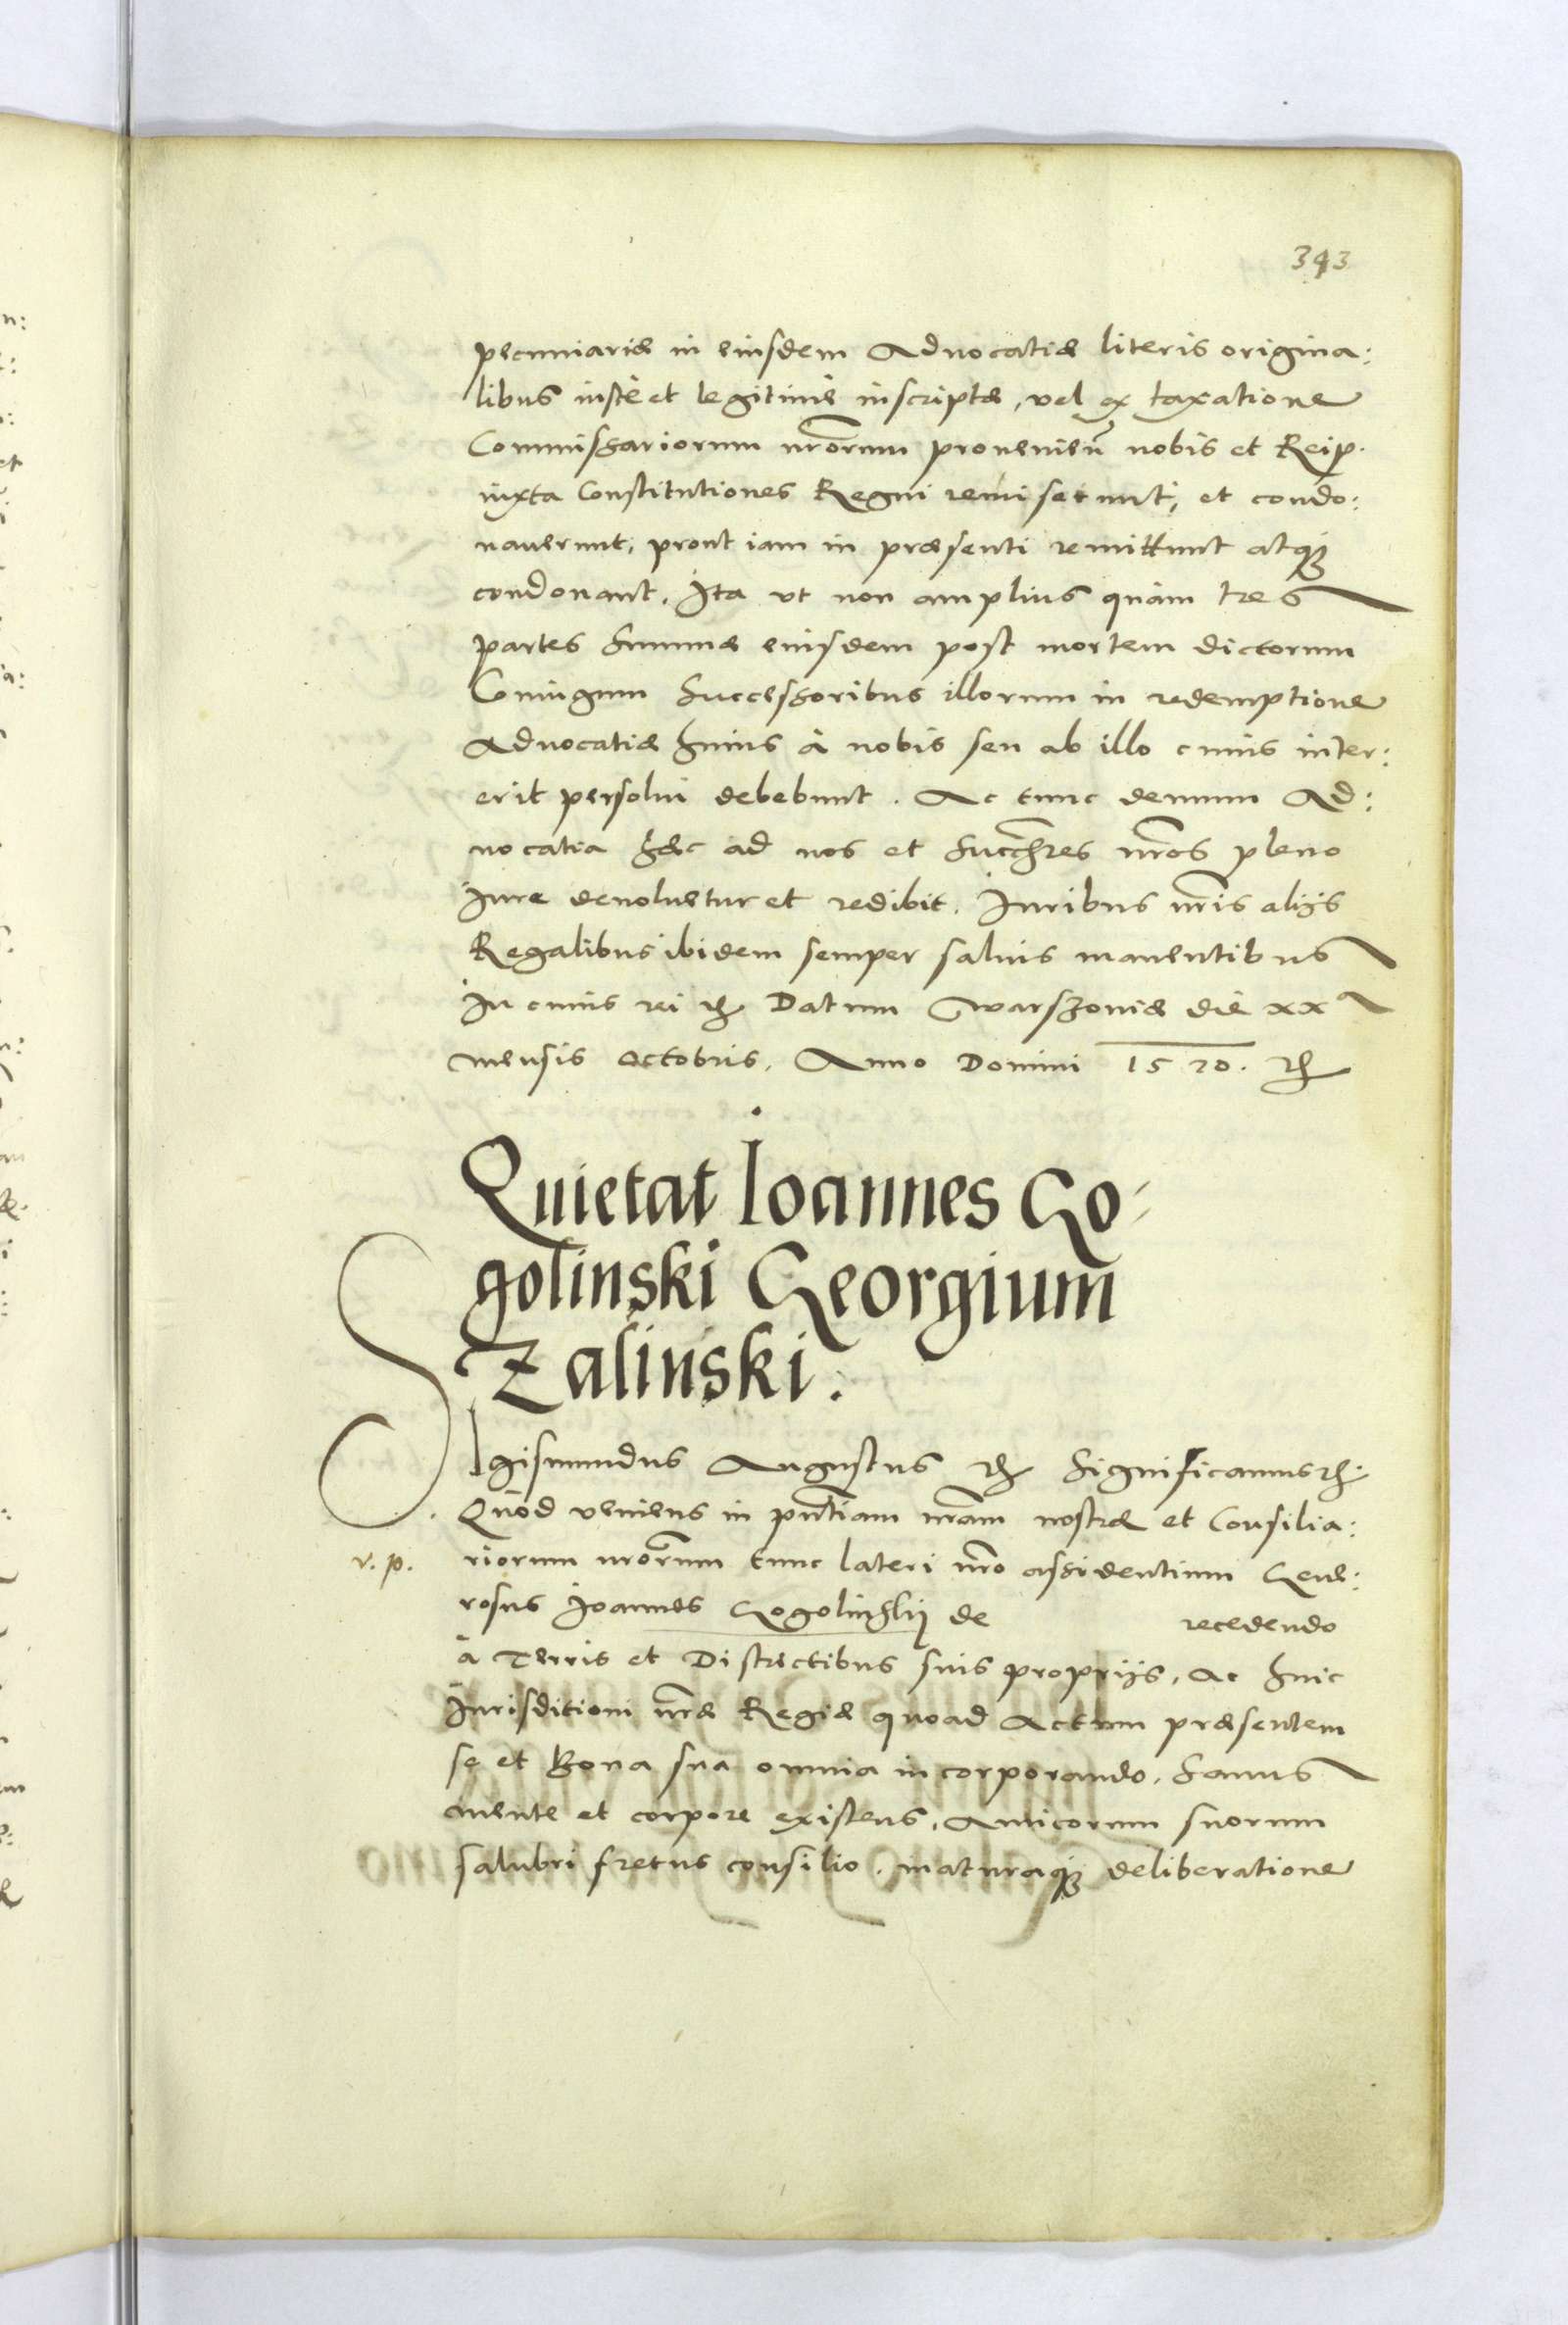 343
pecuniariæ in eiusdem Aduocatiæ literis origina:
libus iustè et legitimè inscriptæ, vel ex taxatione
Commissariorum nr̃orum prouenien̄ nobis et Reip.
iuxta Constitutiones Regni remiserunt, et condo:
nauerunt, prout iam in præsenti remittunt atq́ꝫ
condonant. Ita vt non amplius quàm tres
partes summæ eiusdem post mortem dictorum
Coniugum successoribus illorum in redemptione
Aduocatiæ huius à nobis seu ab illo cuius inter:
erit persolui debebunt. Ac tunc demum Ad:
uocatia hæc ad nos et succ̃res nr̃os pleno
iure deuoluetur et redibit. Iuribus nr̃is alijs
Regalibus ibidem semper saluis manentibus
In cuius rei ꝛc̃ Datum Warszouiæ die xx a
mensis octobris. Anno Domini 1570. ꝛc̃
Quietat Ioannes Go-
golinski Georgium
Zalinski.
Sigismundus Augustus ꝛc̃ Significamus ꝛc̃:
Quod veniens in pn̄tiam nr̃am nostræ et Consilia:
v. p. riorum nr̃orum tunc lateri nr̃o assidentium Gene:
rosus Ioannes Gogolinskij de recedendo
à Terris et Districtibus suis proprijs, ac huic
Iurisditioni nr̃æ Regiæ quoad Actum præsentem
se et Bona sua omnia incorporando. Sanus
mente et corpore existens, Amicorum suorum
salubri fretus consilio, maturaq́ꝫ deliberatione